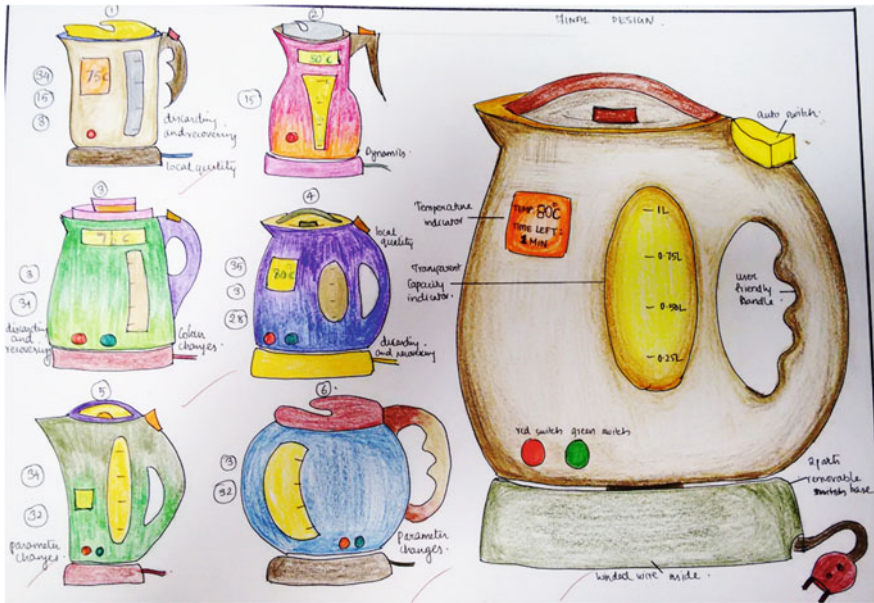 FINAL DESIGN.
1
34
15
8
75C
discarding
and recovering
local quality
2
15
50°C
Dynamics
3
3
34
discarding
and
recovering
7 C
colour
changes.
4
35
3
28
80C
local
quality
discarding
and recovering
5
34
32
parameter
changes
6.
3
32
parameter
changes.
auto switch.
Temperature
indicator
TEMP: 80°C
TIME LEFT:
1 MIN
Transparent
Capacity
indicator.
1L
0.75L
0.50L
0.25L
user
friendly
handle
red switch green switch
2 parts
removable
base
winded wire inside.